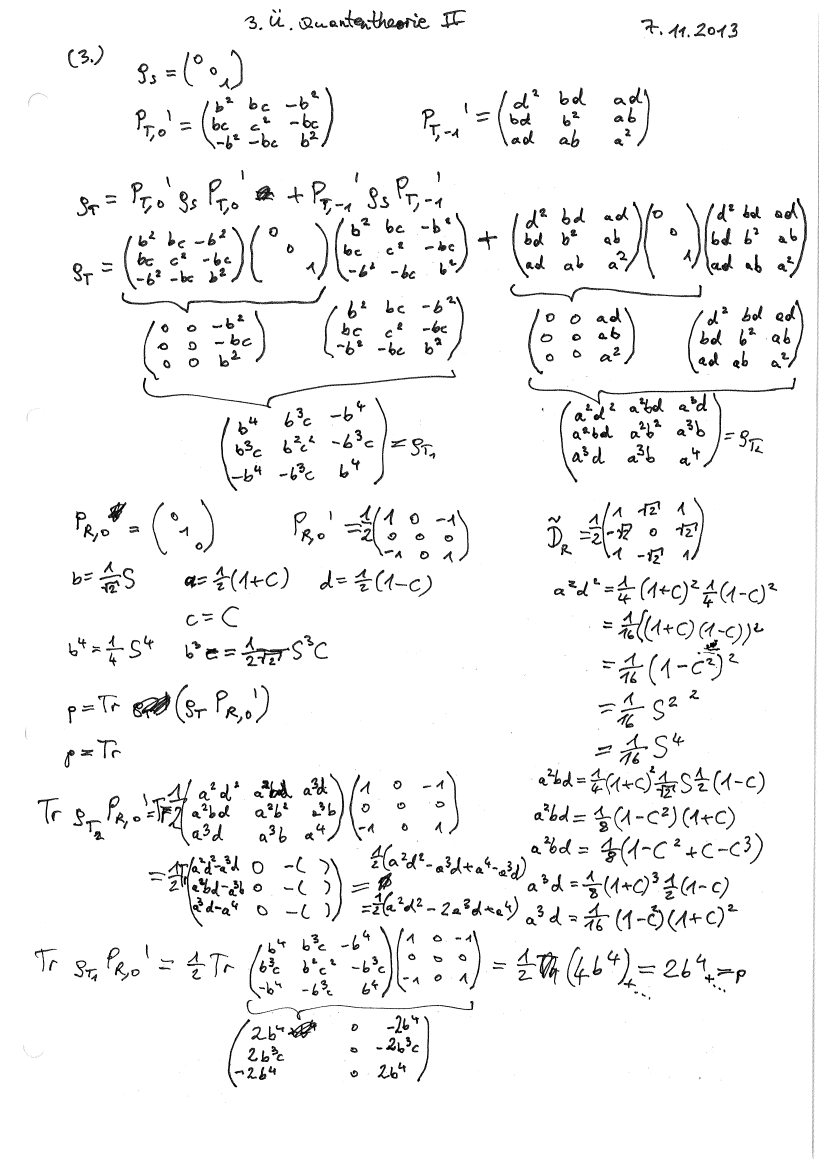 3. Ü. Quantentheorie II 7.11.2013
(3.) ρ_S = (0 0 1)
P_{T,0}' = (b² bc -b² / bc c² -bc / -b² -bc b²) P_{T,-1}' = (d² bd ad / bd b² ab / ad ab a²)
ρ_T = P_{T,0}' ρ_S P_{T,0}' + P_{T,-1}' ρ_S P_{T,-1}'
ρ_T = (b² bc -b² / bc c² -bc / -b² -bc b²) (0 0 1) (b² bc -b² / bc c² -bc / -b² -bc b²) + (d² bd ad / bd b² ab / ad ab a²) (0 0 1) (d² bd ad / bd b² ab / ad ab a²)
(0 0 -b² / 0 0 -bc / 0 0 b²) (b² bc -b² / bc c² -bc / -b² -bc b²) (0 0 ad / 0 0 ab / 0 0 a²) (d² bd ad / bd b² ab / ad ab a²)
(b⁴ b³c -b⁴ / b³c b²c² -b³c / -b⁴ -b³c b⁴) = ρ_{T1} (a²d² a²bd a³d / a²bd a²b² a³b / a³d a³b a⁴) = ρ_{T2}
P_{R,0} = (0 1 0) P_{R,0}' = 1/2 (1 0 -1 / 0 0 0 / -1 0 1) D̃_R = 1/2 (1 √2 1 / -√2 0 √2 / 1 -√2 1)
b = 1/√2 S a = 1/2 (1+C) d = 1/2 (1-C) a²d² = 1/4 (1+C)² 1/4 (1-C)²
c = C = 1/16 ((1+C)(1-C))²
b⁴ = 1/4 S⁴ b³c = 1/(2√2) S³C = 1/16 (1-C²)²
p = Tr (ρ_T P_{R,0}') = 1/16 S² ²
p = Tr = 1/16 S⁴
a²bd = 1/4 (1+C)² 1/√2 S 1/2 (1-C)
Tr ρ_{T2} P_{R,0}' = Tr 1/2 (a²d² a²bd a³d / a²bd a²b² a³b / a³d a³b a⁴) (1 0 -1 / 0 0 0 / -1 0 1) a²bd = 1/8 (1-C²)(1+C)
a²bd = 1/8 (1-C²+C-C³)
= 1/2 Tr (a²d²-a³d 0 -( ) / a²bd-a³b 0 -( ) / a³d-a⁴ 0 -( )) = 1/2 (a²d²-a³d+a⁴-a³d) a³d = 1/8 (1+C)³ 1/2 (1-C)
= 1/2 (a²d²-2a³d+a⁴) a³d = 1/16 (1-C²)(1+C)²
Tr ρ_{T1} P_{R,0}' = 1/2 Tr (b⁴ b³c -b⁴ / b³c b²c² -b³c / -b⁴ -b³c b⁴) (1 0 -1 / 0 0 0 / -1 0 1) = 1/2 (4b⁴) +... = 2b⁴ +... = p
(2b⁴ 0 -2b⁴ / 2b³c 0 -2b³c / -2b⁴ 0 2b⁴)